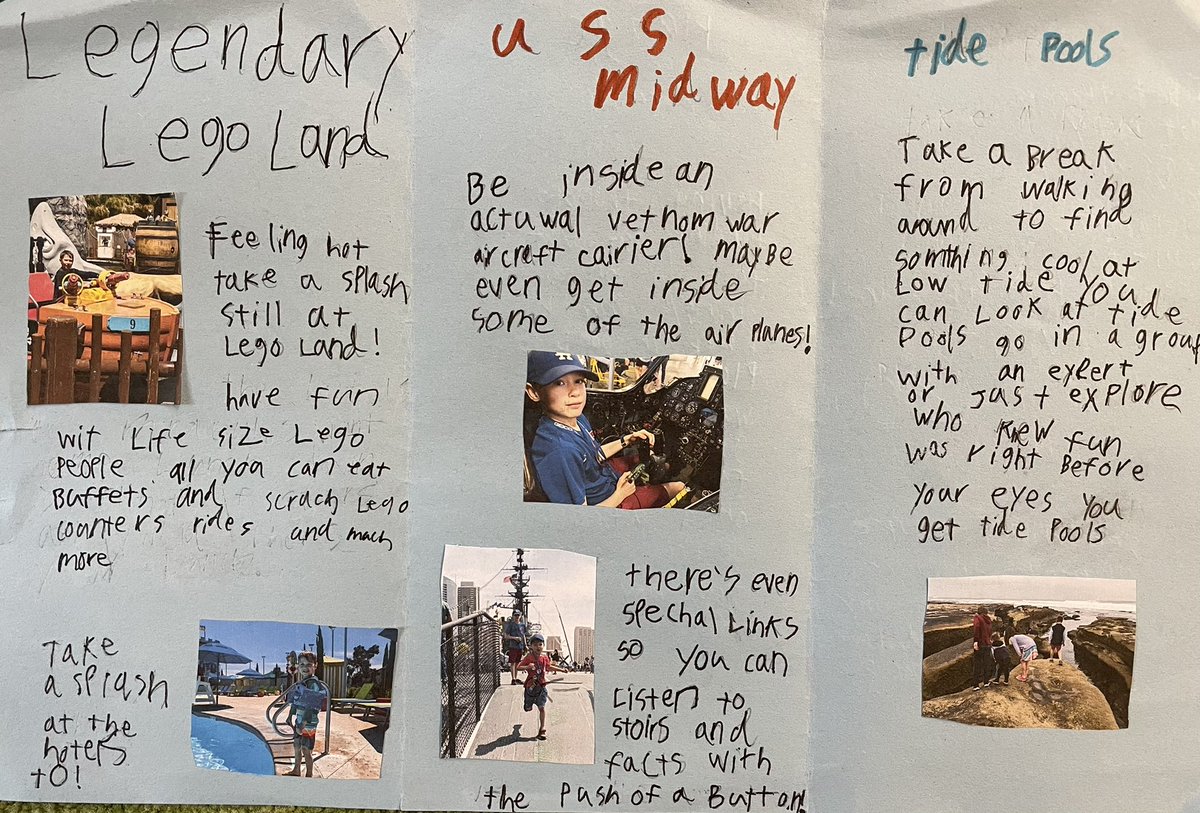 Legendary
Lego Land
Feeling hot
take a splash
still at
Lego Land!
have fun
wit Life size Lego
people all you can eat
Buffets and scrach Lego
counters rides and mach
more
9
Take
a splash
at the
hotels
to!
uss
midway
Be inside an
actuwal vethom war
aircraft cairier! maybe
even get inside
some of the air planes!
there's even
spechal Links
so you can
Listen to
stoirs and
facts with
the push of a Button!
tide pools
Take a Break
from walking
around to find
somthing cool at
Low tide you
can Look at tide
pools go in a group
with an expert
or just explore
who knew fun
was right Before
your eyes you
get tide pools